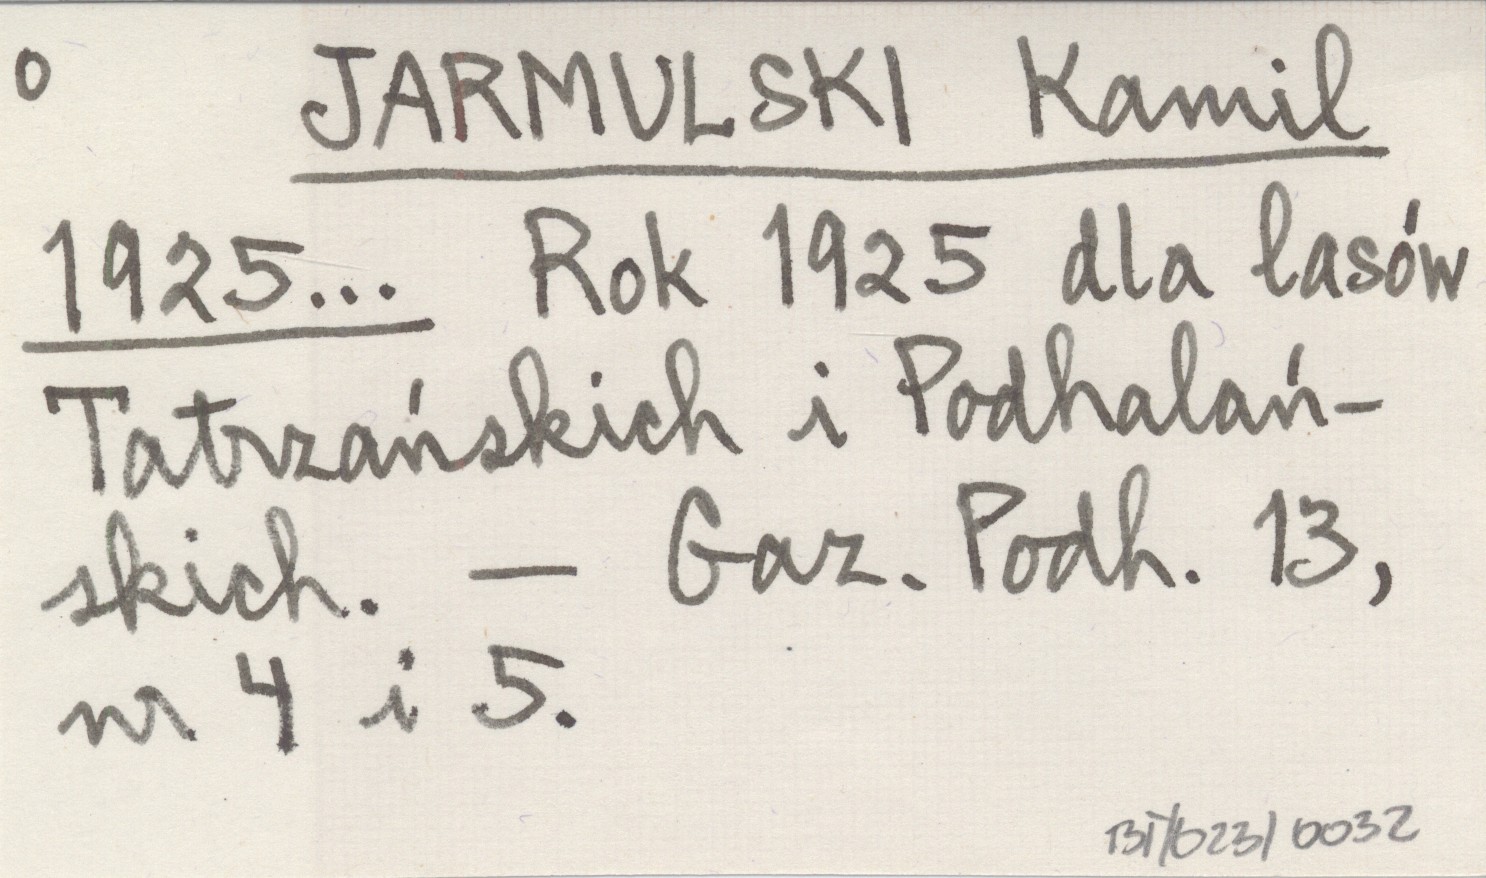 o JARMULSKI Kamil
1925... Rok 1925 dla lasów
Tatrzańskich i Podhalań-
skich. — Gaz. Podh. 13,
nr 4 i 5.
BT/623/0032